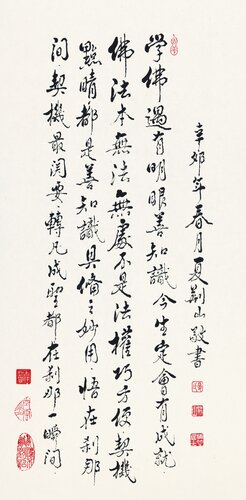 辛卯年春月夏荊山敬書
學佛遇有明眼善知識今生定會有成就
佛法本無法無處不是法權巧方便契機
點睛都是善知識具備之妙用悟在刹那
間契機最関要轉凡成聖都在刹那一瞬間